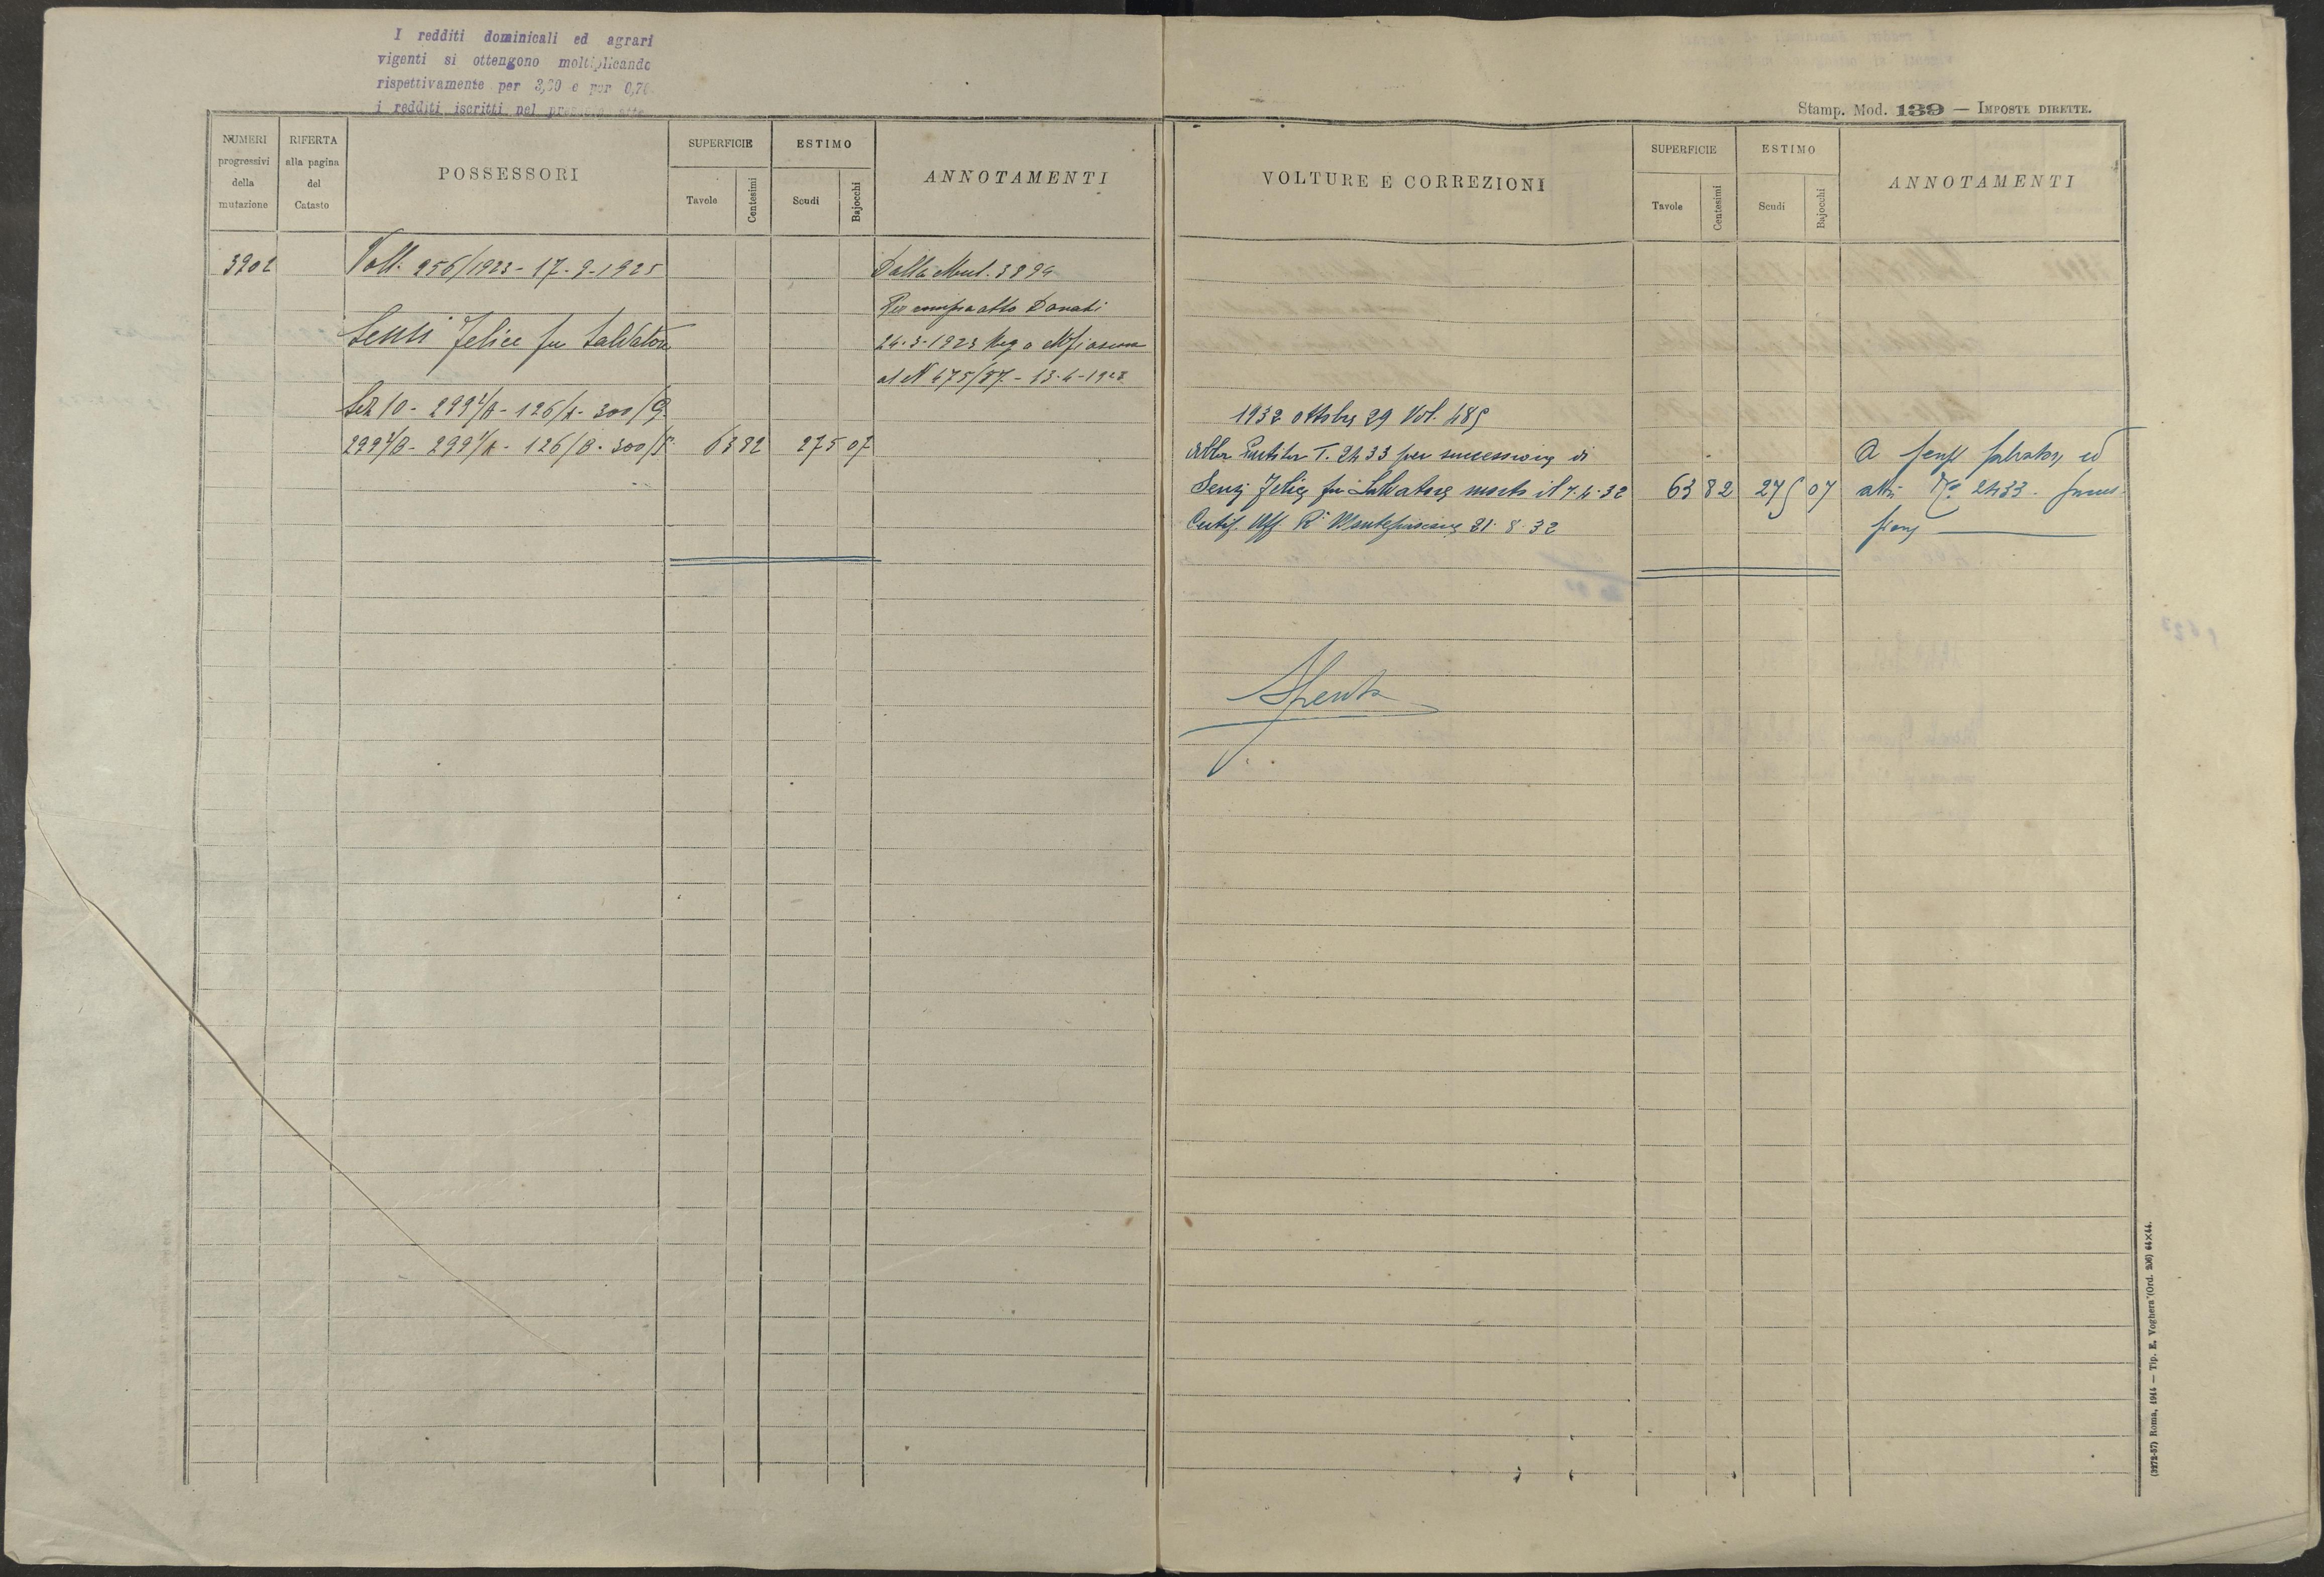 I redditi dominicali ed agrari
vigenti si ottengono moltiplicando
rispettivamente per 3,60 e per 0,70
i redditi iscritti nel
NUMERI
progressivi
della
mutazione
RIFERTA
alla pagina
del
Catasto
POSSESSORI
SUPERFICIE
Tavole
Centesimi
ESTIMO
Scudi
Bajocchi
ANNOTAMENTI
3902
Volt. 256/1923 - 17-9-1925
Dalla Mut. 3894
Per compra atto Donati
Sensi Felice fu Salvatore
24-3-1923 Reg a Mfiascone
al N 475/87 - 13-4-1923
Sez 10 - 299²/A - 126/A - 300/
- 126/B - 300/ 63 82 275 07
Stamp. Mod. 139 — IMPOSTE DIRETTE.
VOLTURE E CORREZIONI
SUPERFICIE
Tavole
Centesimi
ESTIMO
Scudi
Bajocchi
ANNOTAMENTI
1932 ottobre 29 Vol. 485
Alla Partita T. 2433 per successione di
Sensi Felice fu Salvatore morto il 7-4-32 63 82 275 07
Certif. Uff R° Montefiascone 31-8-32
A Sensi Salvatore ed
altri N° 2433. Succes-
sione
Spenta
(3272-57) Roma, 1914 — Tip. E. Voghera (Ord. 206) 64×44.